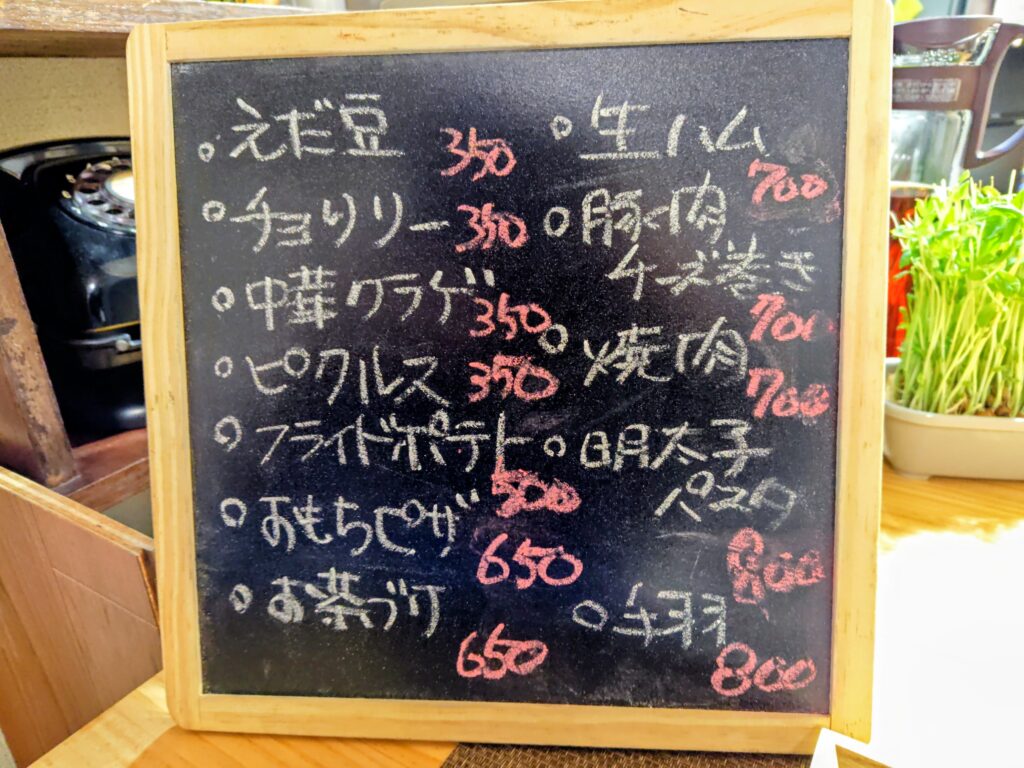 えだ豆 350
チョリソー 350
中華クラゲ 350
ピクルス 350
フライドポテト
500
おもちピザ
650
お茶づけ
650
生ハム
700
豚肉
チーズ巻き
700
焼肉
700
明太子
パスタ
800
手羽
800